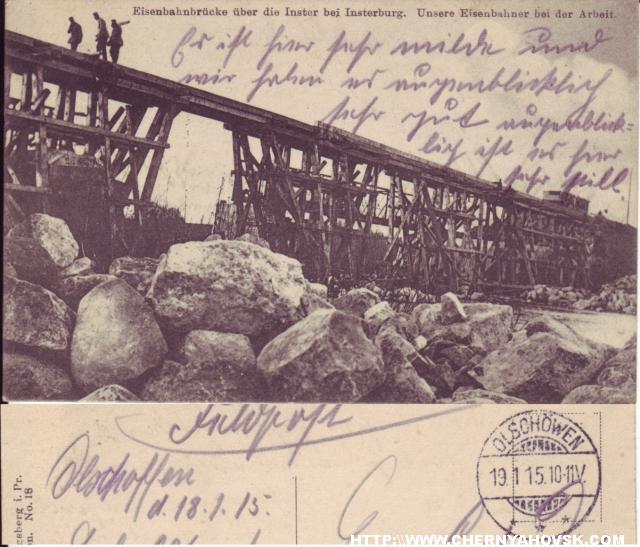 Eisenbahnbrücke über die Inster bei Insterburg. Unsere Eisenbahner bei der Arbeit.
Es ist hier sehr milde und
wir haben es augenblicklich
sehr gut augenblick-
lich ist es hier
sehr still.
Feldpost
OLSCHÖWEN
19. 1 15. 10-11V.
Olschöffen
d. 18.1.15.
gsberg i. Pr.
No. 18
HTTP://WWW.CHERNYAHOVSK.COM/